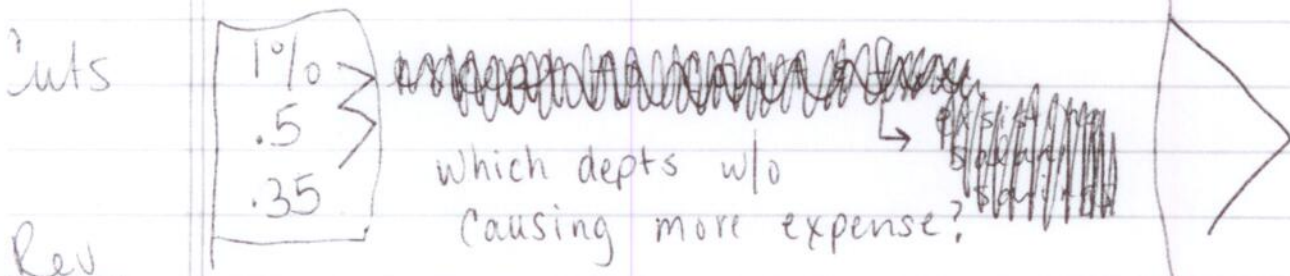 Cuts
1%
.5
.35
which depts w/o
causing more expense?
Rev